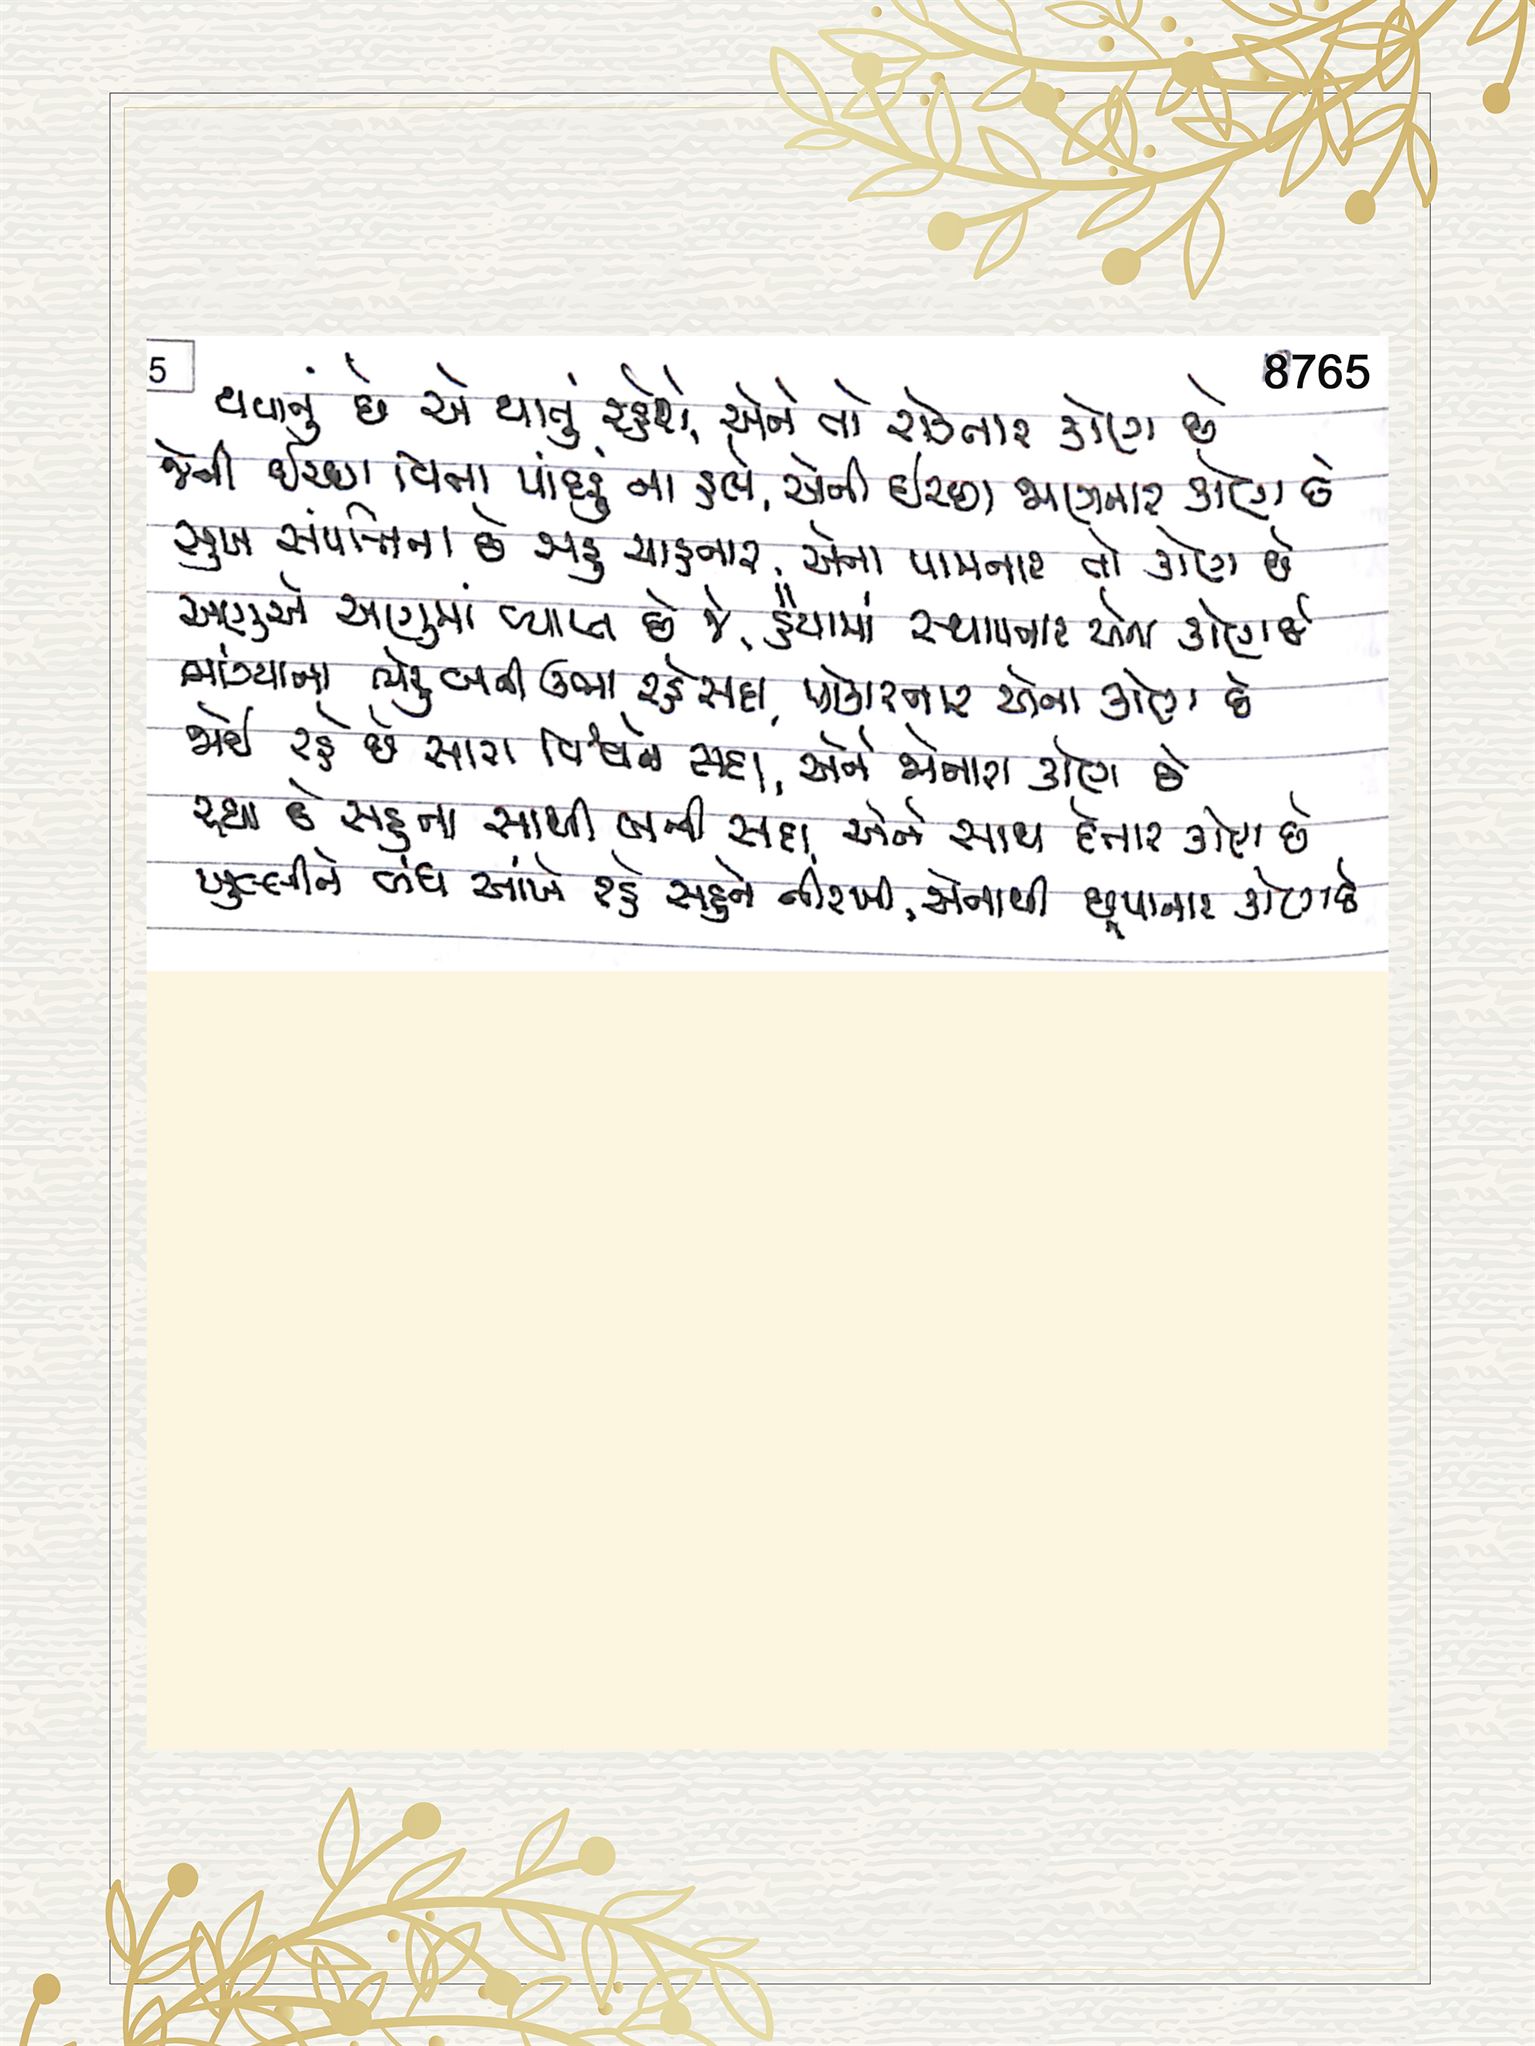 5
8765
થવાનું છે એ થાતું રહેશે, એને તો રોકનાર કોણ છે
જેની ઈચ્છા વિના પાંદડું ના હલે, એની ઈચ્છા જાણનાર કોણ છે
સુખ સંપત્તિના છે સહુ ચાહનાર, એના પામનાર તો કોણ છે
અણુએ અણુમાં વ્યાપ્ત છે જે, હૈયામાં સ્થાપનાર એના કોણ છે
ભાંગ્યાના ભેરુ બની ઉભા રહે સદા, પોકારનાર એના કોણ છે
જોઈ રહે છે સારા વિશ્વને સદા, એને જોનારા કોણ છે
રહ્યા છે સહુના સાથી બની સદા, એને સાથ દેનાર કોણ છે
ખુલ્લીને બંધ આંખે રહે સહુને નીરખી, એનાથી છૂપાનાર કોણ છે